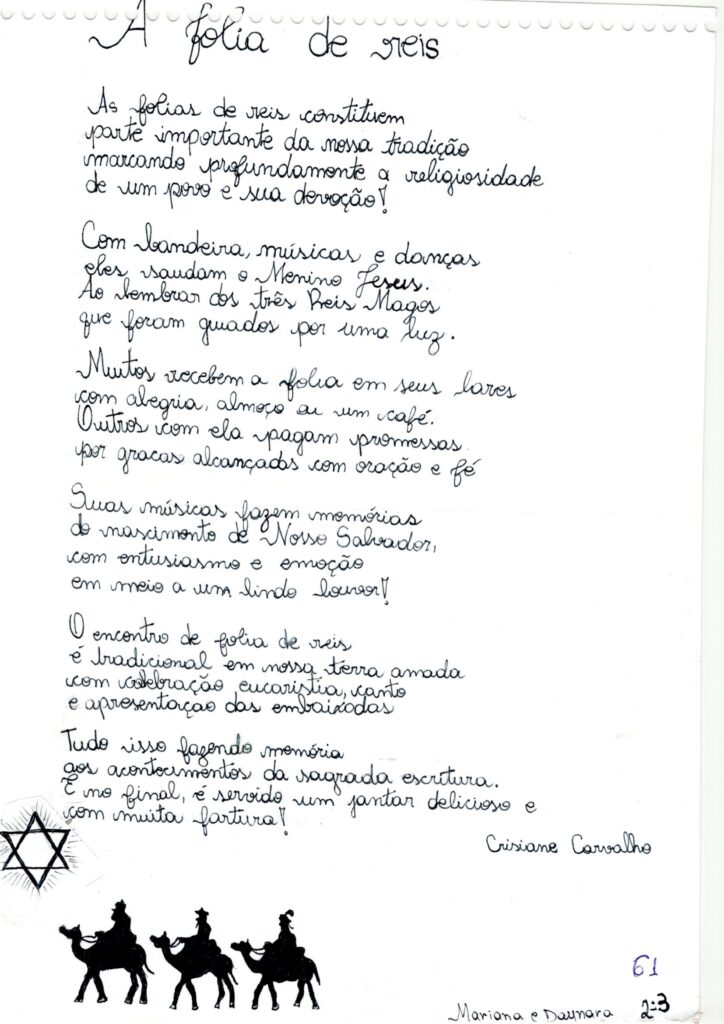 A folia de reis
As folias de reis constituem
parte importante da nossa tradição
marcando profundamente a religiosidade
de um povo e sua devoção!
Com bandeira, músicas e danças
eles saudam o Menino Jesus.
Ao lembrar dos três Reis Magos
que foram guiados por uma luz.
Muitos recebem a folia em seus lares
com alegria, almoço ou um café.
Outros com ela pagam promessas
por gracas alcançadas com oração e fé
Suas músicas fazem memórias
do nascimento de Nosso Salvador,
com entusiasmo e emoção
em meio a um lindo louvor!
O encontro de folia de reis
é tradicional em nossa terra amada
com celebração eucaristia, canto
e apresentação das embaixadas
Tudo isso fazendo memória
aos acontecimentos da sagrada escritura.
E no final, é servido um jantar delicioso e
com muita fartura!
Crisiane Carvalho
61
Mariana e Daynara 2:3